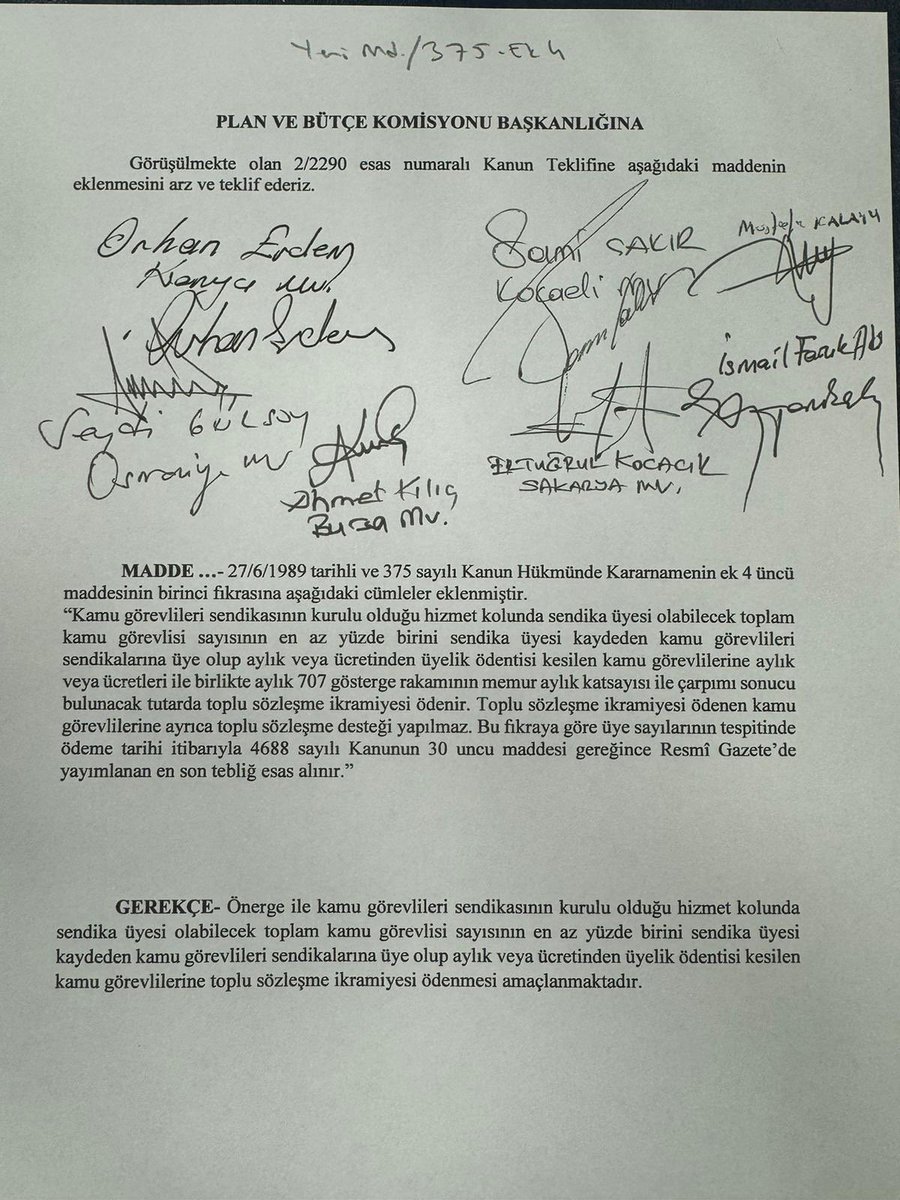 Yeni Md./375-Ek 4
PLAN VE BÜTÇE KOMİSYONU BAŞKANLIĞINA
Görüşülmekte olan 2/2290 esas numaralı Kanun Teklifine aşağıdaki maddenin
eklenmesini arz ve teklif ederiz.
Orhan Erdem
Konya mv.
Orhan Erdem
Sami ÇAKIR
Kocaeli mv
Mustafa KALAYCI
İsmail Faruk
Seydi GÜLSOY
Osmaniye mv
Ahmet Kılıç
Bursa Mv.
ERTUĞRUL KOCACIK
SAKARYA MV.
MADDE ...- 27/6/1989 tarihli ve 375 sayılı Kanun Hükmünde Kararnamenin ek 4 üncü
maddesinin birinci fıkrasına aşağıdaki cümleler eklenmiştir.
“Kamu görevlileri sendikasının kurulu olduğu hizmet kolunda sendika üyesi olabilecek toplam
kamu görevlisi sayısının en az yüzde birini sendika üyesi kaydeden kamu görevlileri
sendikalarına üye olup aylık veya ücretinden üyelik ödentisi kesilen kamu görevlilerine aylık
veya ücretleri ile birlikte aylık 707 gösterge rakamının memur aylık katsayısı ile çarpımı sonucu
bulunacak tutarda toplu sözleşme ikramiyesi ödenir. Toplu sözleşme ikramiyesi ödenen kamu
görevlilerine ayrıca toplu sözleşme desteği yapılmaz. Bu fıkraya göre üye sayılarının tespitinde
ödeme tarihi itibarıyla 4688 sayılı Kanunun 30 uncu maddesi gereğince Resmî Gazete’de
yayımlanan en son tebliğ esas alınır.”
GEREKÇE- Önerge ile kamu görevlileri sendikasının kurulu olduğu hizmet kolunda
sendika üyesi olabilecek toplam kamu görevlisi sayısının en az yüzde birini sendika üyesi
kaydeden kamu görevlileri sendikalarına üye olup aylık veya ücretinden üyelik ödentisi kesilen
kamu görevlilerine toplu sözleşme ikramiyesi ödenmesi amaçlanmaktadır.